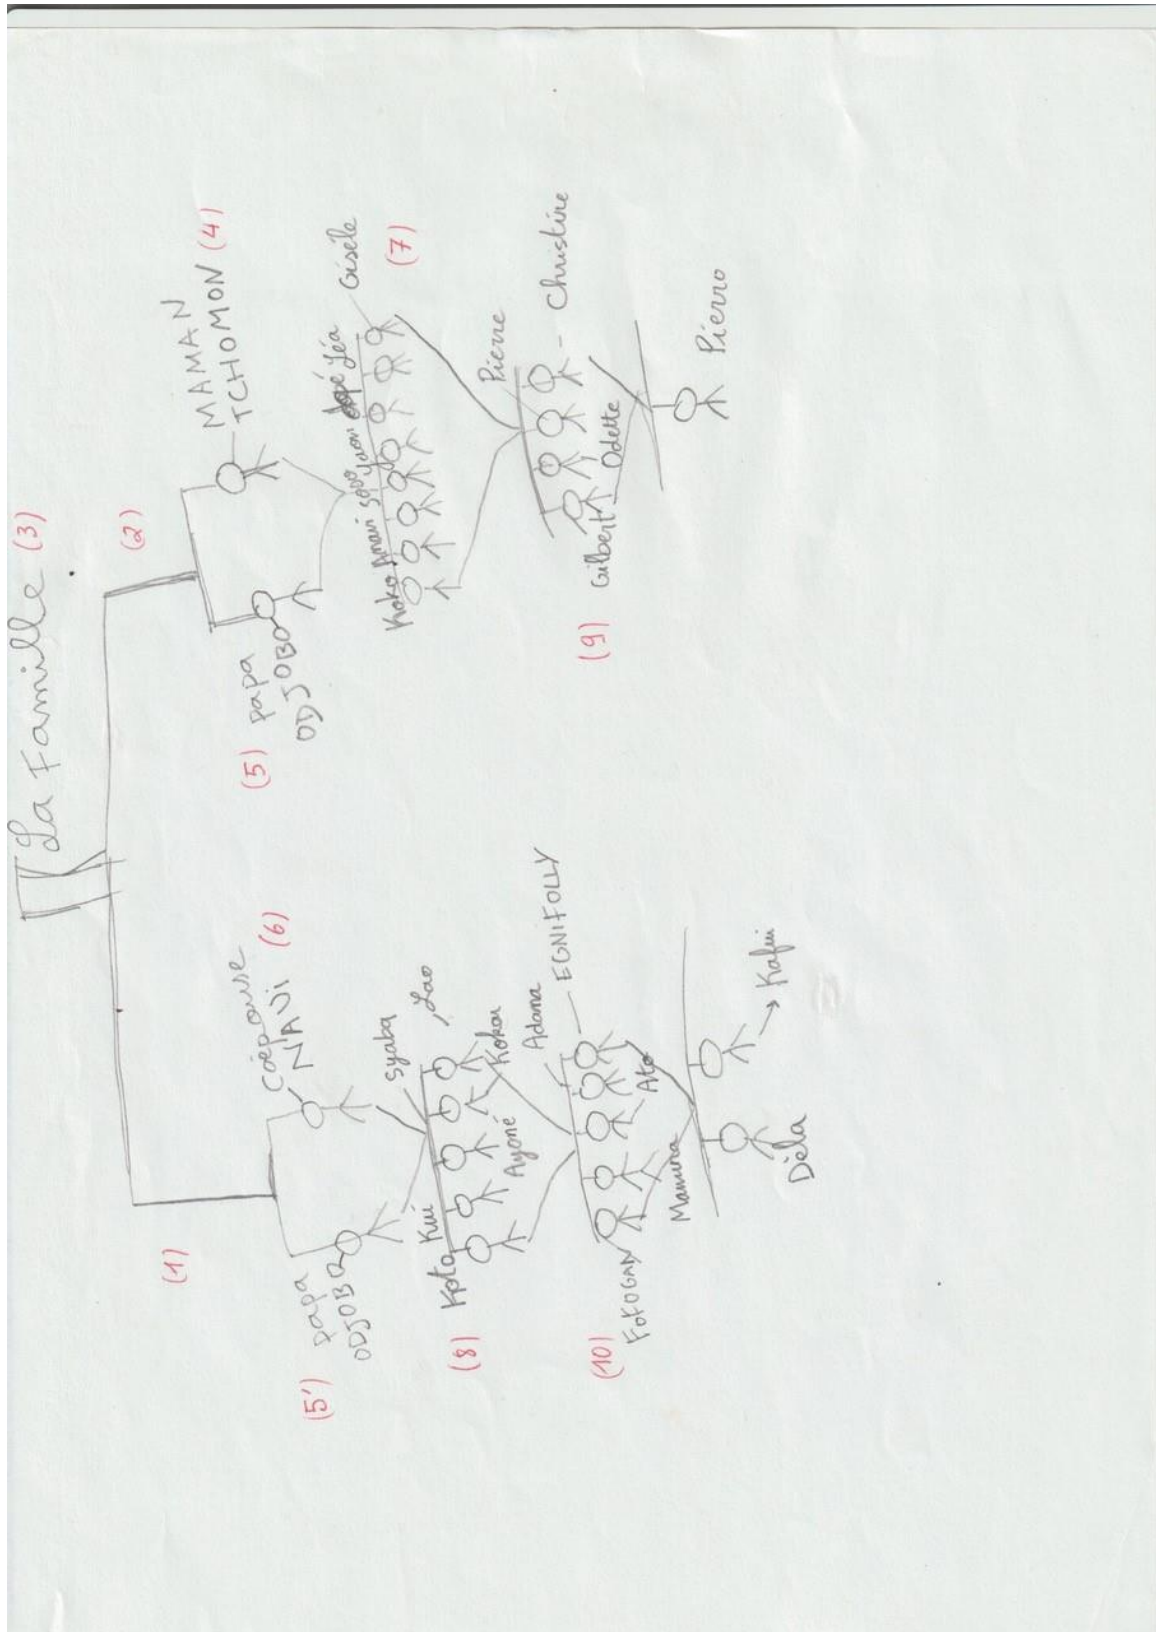 La Famille (3)
(1)
(2)
(5') papa
ODJOBO
Coépouse
NAVI (6)
(5) papa
ODJOBO
MAMAN
TCHOMON (4)
(8) Koto Kui
Syaba
Lao
Ayoné
Kokou
Koko Anavi Soso Yaovi Dopé Léa
Gisèle
(7)
(10)
FOFOGAN
Mamuna
Ato
Adama
EGNIFOLLY
(9) Gilbert
Odette
Pierre
Christine
Dèla
Kafui
Pierro